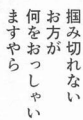 掴み切れない
お方が
何をおっしゃい
ますやら